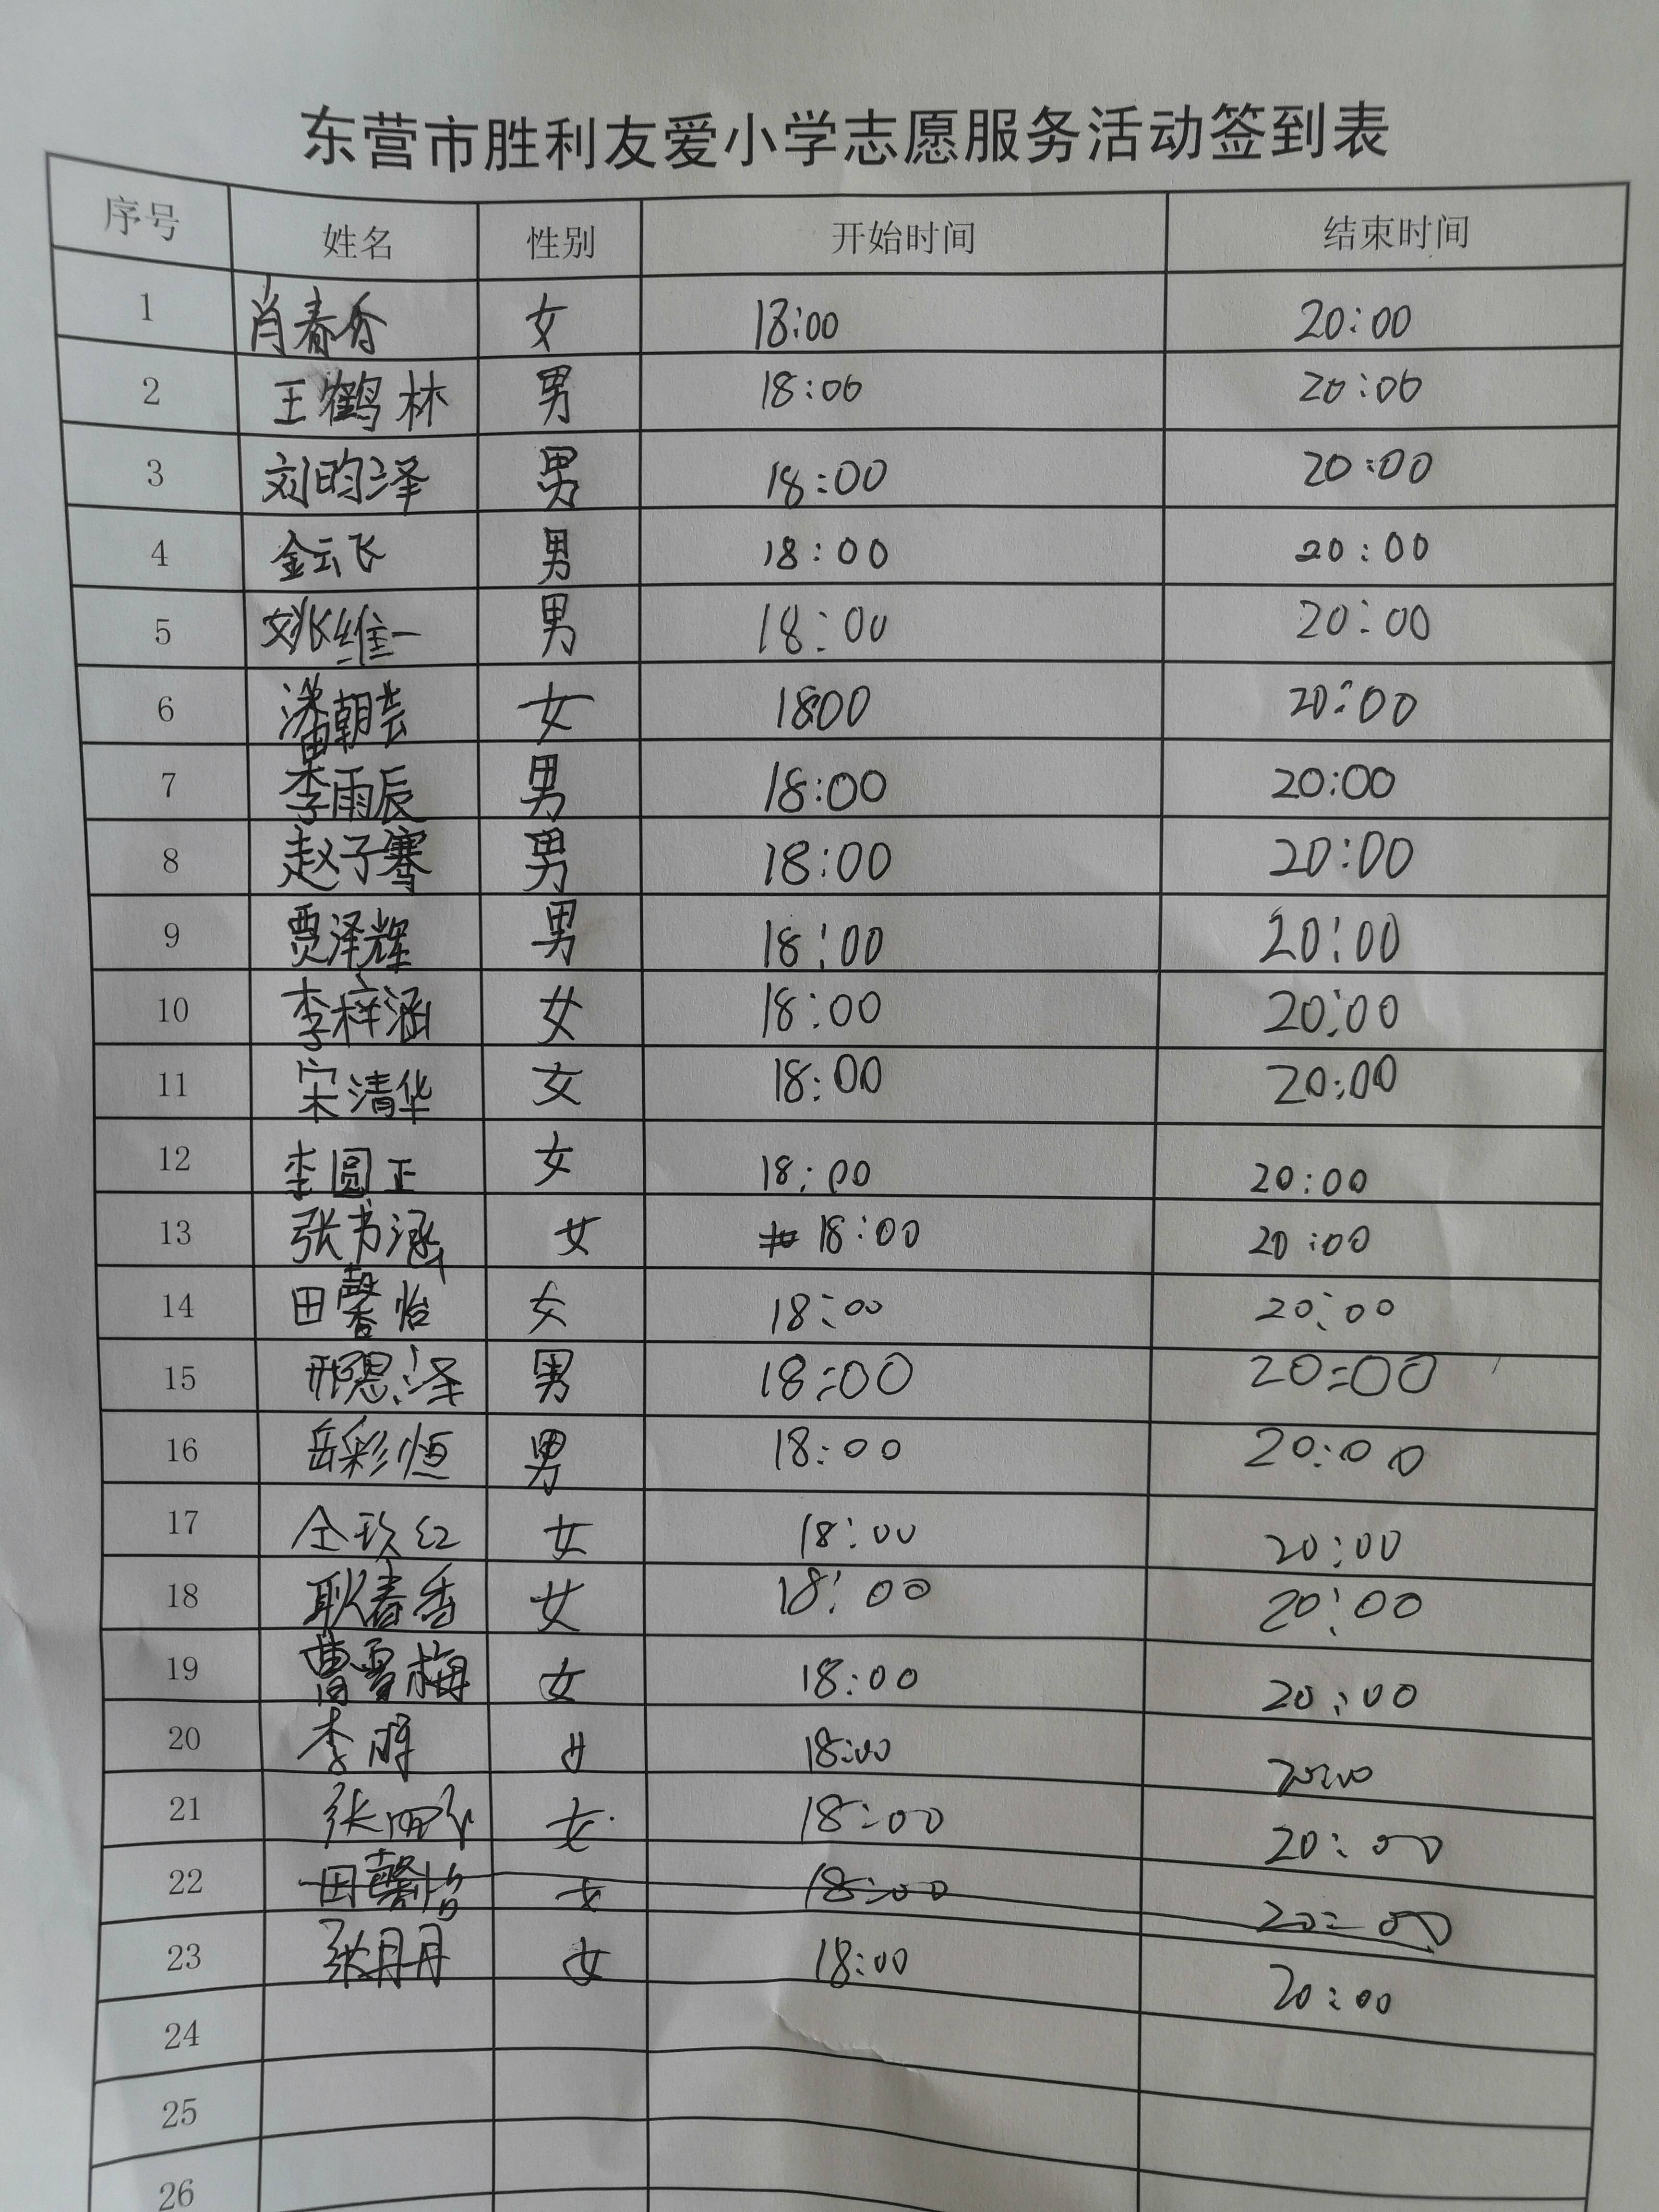 东营市胜利友爱小学志愿服务活动签到表
序号 姓名 性别 开始时间 结束时间
1 肖春香 女 18:00 20:00
2 王鹤林 男 18:00 20:00
3 刘昀泽 男 18:00 20:00
4 金云飞 男 18:00 20:00
5 姚维一 男 18:00 20:00
6 潘朝芸 女 1800 20:00
7 李雨辰 男 18:00 20:00
8 赵子骞 男 18:00 20:00
9 贾泽辉 男 18:00 20:00
10 李梓涵 女 18:00 20:00
11 宋清华 女 18:00 20:00
12 李圆正 女 18:00 20:00
13 张书涵 女 18:00 20:00
14 田馨怡 女 18:00 20:00
15 邢恩泽 男 18:00 20:00
16 岳彩恒 男 18:00 20:00
17 仝玖红 女 18:00 20:00
18 耿春香 女 18:00 20:00
19 曹雪梅 女 18:00 20:00
20 李 女 18:00 20:00
21 张丽 女 18:00 20:00
22 田馨怡 女 18:00 20:00
23 张丹丹 女 18:00 20:00
24
25
26